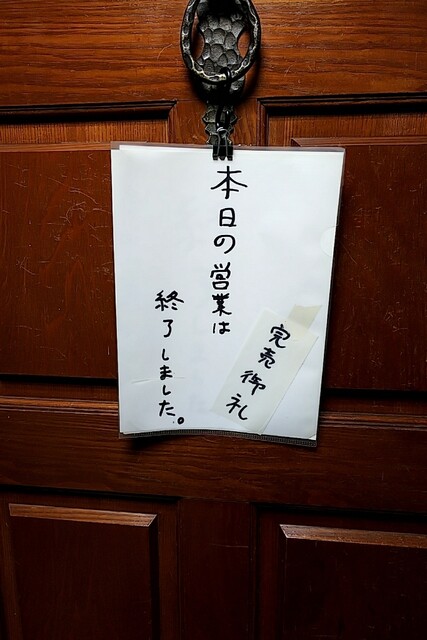 本日の営業は
終了しました。
完売御礼